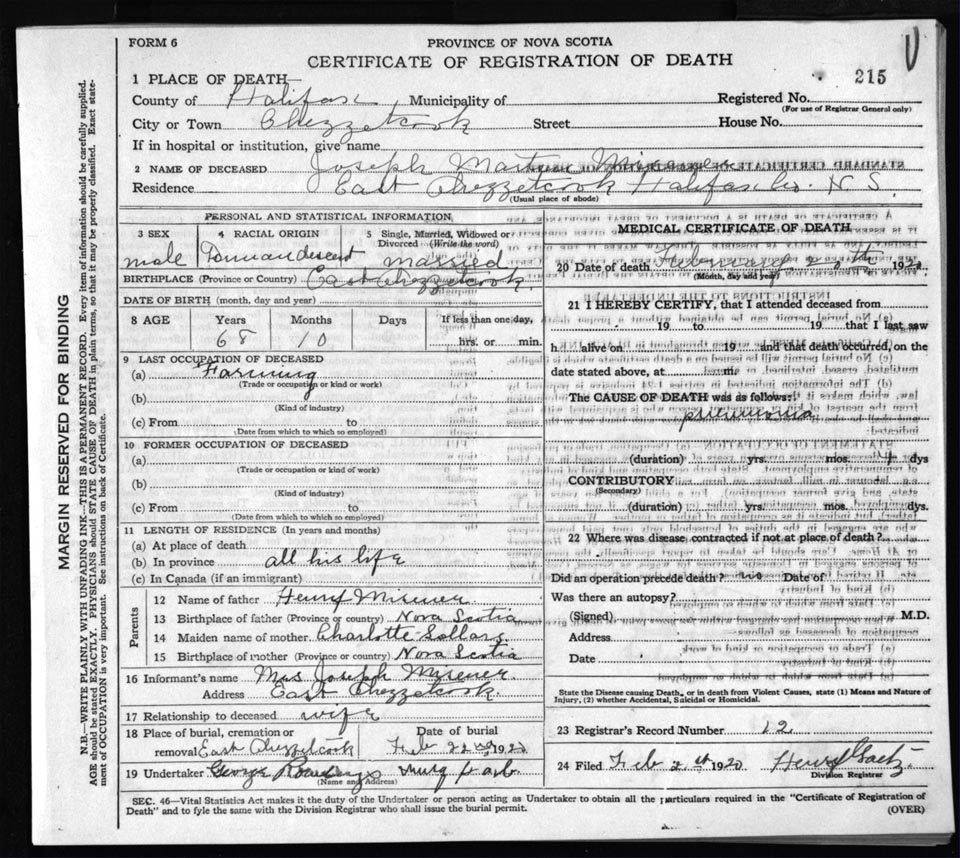 FORM 6
PROVINCE OF NOVA SCOTIA
CERTIFICATE OF REGISTRATION OF DEATH
215
1 PLACE OF DEATH—
County of Halifax, Municipality of Registered No.
(For use of Registrar General only)
City or Town Chezzetcook Street House No.
If in hospital or institution, give name
2 NAME OF DECEASED Joseph Martin Misener
Residence East Chezzetcook Halifax Co. N S.
(Usual place of abode)
PERSONAL AND STATISTICAL INFORMATION
3 SEX 4 RACIAL ORIGIN 5 Single, Married, Widowed or Divorced (Write the word)
male descent married
BIRTHPLACE (Province or Country) East Chezzetcook
DATE OF BIRTH (month, day and year)
8 AGE Years Months Days If less than one day,
68 10 hrs. or min.
9 LAST OCCUPATION OF DECEASED
(a) Farming
(Trade or occupation or kind of work)
(b)
(Kind of industry)
(c) From to
(Date from which to which so employed)
10 FORMER OCCUPATION OF DECEASED
(a)
(Trade or occupation or kind of work)
(b)
(Kind of industry)
(c) From to
(Date from which to which so employed)
11 LENGTH OF RESIDENCE (In years and months)
(a) At place of death
(b) In province all his life
(c) In Canada (if an immigrant)
Parents
12 Name of father Henry Misener
13 Birthplace of father (Province or country) Nova Scotia
14 Maiden name of mother Charlotte
15 Birthplace of mother (Province or country) Nova Scotia
16 Informant's name Mrs Joseph Misener
Address East Chezzetcook.
17 Relationship to deceased wife
18 Place of burial, cremation or Date of burial
removal East Chezzetcook Feb 22 19
19 Undertaker George
(Name and Address)
MEDICAL CERTIFICATE OF DEATH
20 Date of death February 2 19
(Month, day and year)
21 I HEREBY CERTIFY, that I attended deceased from
19 to 19 that I last saw
h alive on 19 and that death occurred, on the
date stated above, at m.
The CAUSE OF DEATH was as follows:
pneumonia
(duration) yrs. mos. dys
CONTRIBUTORY
(Secondary)
(duration) yrs. mos. dys.
22 Where was disease contracted if not at place of death?
Did an operation precede death? no Date of
Was there an autopsy?
(Signed) M.D.
Address
Date
State the Disease causing Death, or in death from Violent Causes, state (1) Means and Nature of
Injury, (2) whether Accidental, Suicidal or Homicidal.
23 Registrar's Record Number 12
24 Filed Feb 1920 Henry Gaetz
Division Registrar
SEC. 46—Vital Statistics Act makes it the duty of the Undertaker or person acting as Undertaker to obtain all the particulars required in the "Certificate of Registration of
Death" and to fyle the same with the Division Registrar who shall issue the burial permit.
(OVER)
MARGIN RESERVED FOR BINDING
N.B.—WRITE PLAINLY WITH UNFADING INK—THIS IS A PERMANENT RECORD. Every item of information should be carefully supplied.
AGE should be stated EXACTLY. PHYSICIANS should STATE CAUSE OF DEATH in plain terms, so that it may be properly classified. Exact state-
ment of OCCUPATION is very important. See instructions on back of Certificate.